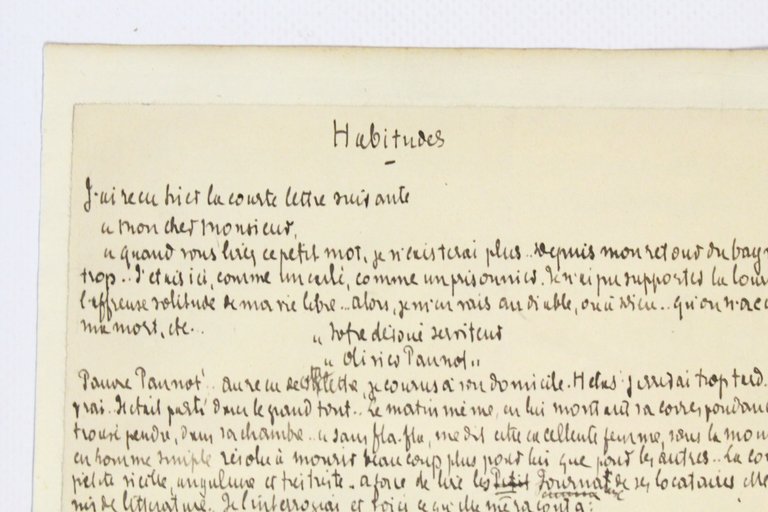 Habitudes
J'ai reçu hier la courte lettre suivante
« Mon cher Monsieur,
« Quand vous lirez ce petit mot, je n'existerai plus.. Depuis mon retour du bag
trop.. J'étais ici, comme un exilé, comme un prisonnier. Je n'ai pu supporter la lour
l'affreuse solitude de ma vie libre... Alors, je m'en vais au diable, ou à Dieu.. qu'on n'acc
ma mort, etc..
« Votre dévoué serviteur
« Olivier Paunot »
Pauvre Paunot!.. Au reçu de cette lettre, je courus à son domicile. Hélas! j'arrivai trop tard.
vrai. Il était parti dans le grand tout.. Le matin même, en lui montant sa correspondanc
trouvé pendu, dans sa chambre. « Sans fla-fla, me dit cette excellente femme, sous la mou
en homme simple résolu à mourir beaucoup plus pour lui que pour les autres.. La con
petite vieille, anguleuse et A force de lire les Petit Journal de ses locataires elle
mis de littérature. Je l'interrogeai et voici ce qu'elle me raconta: